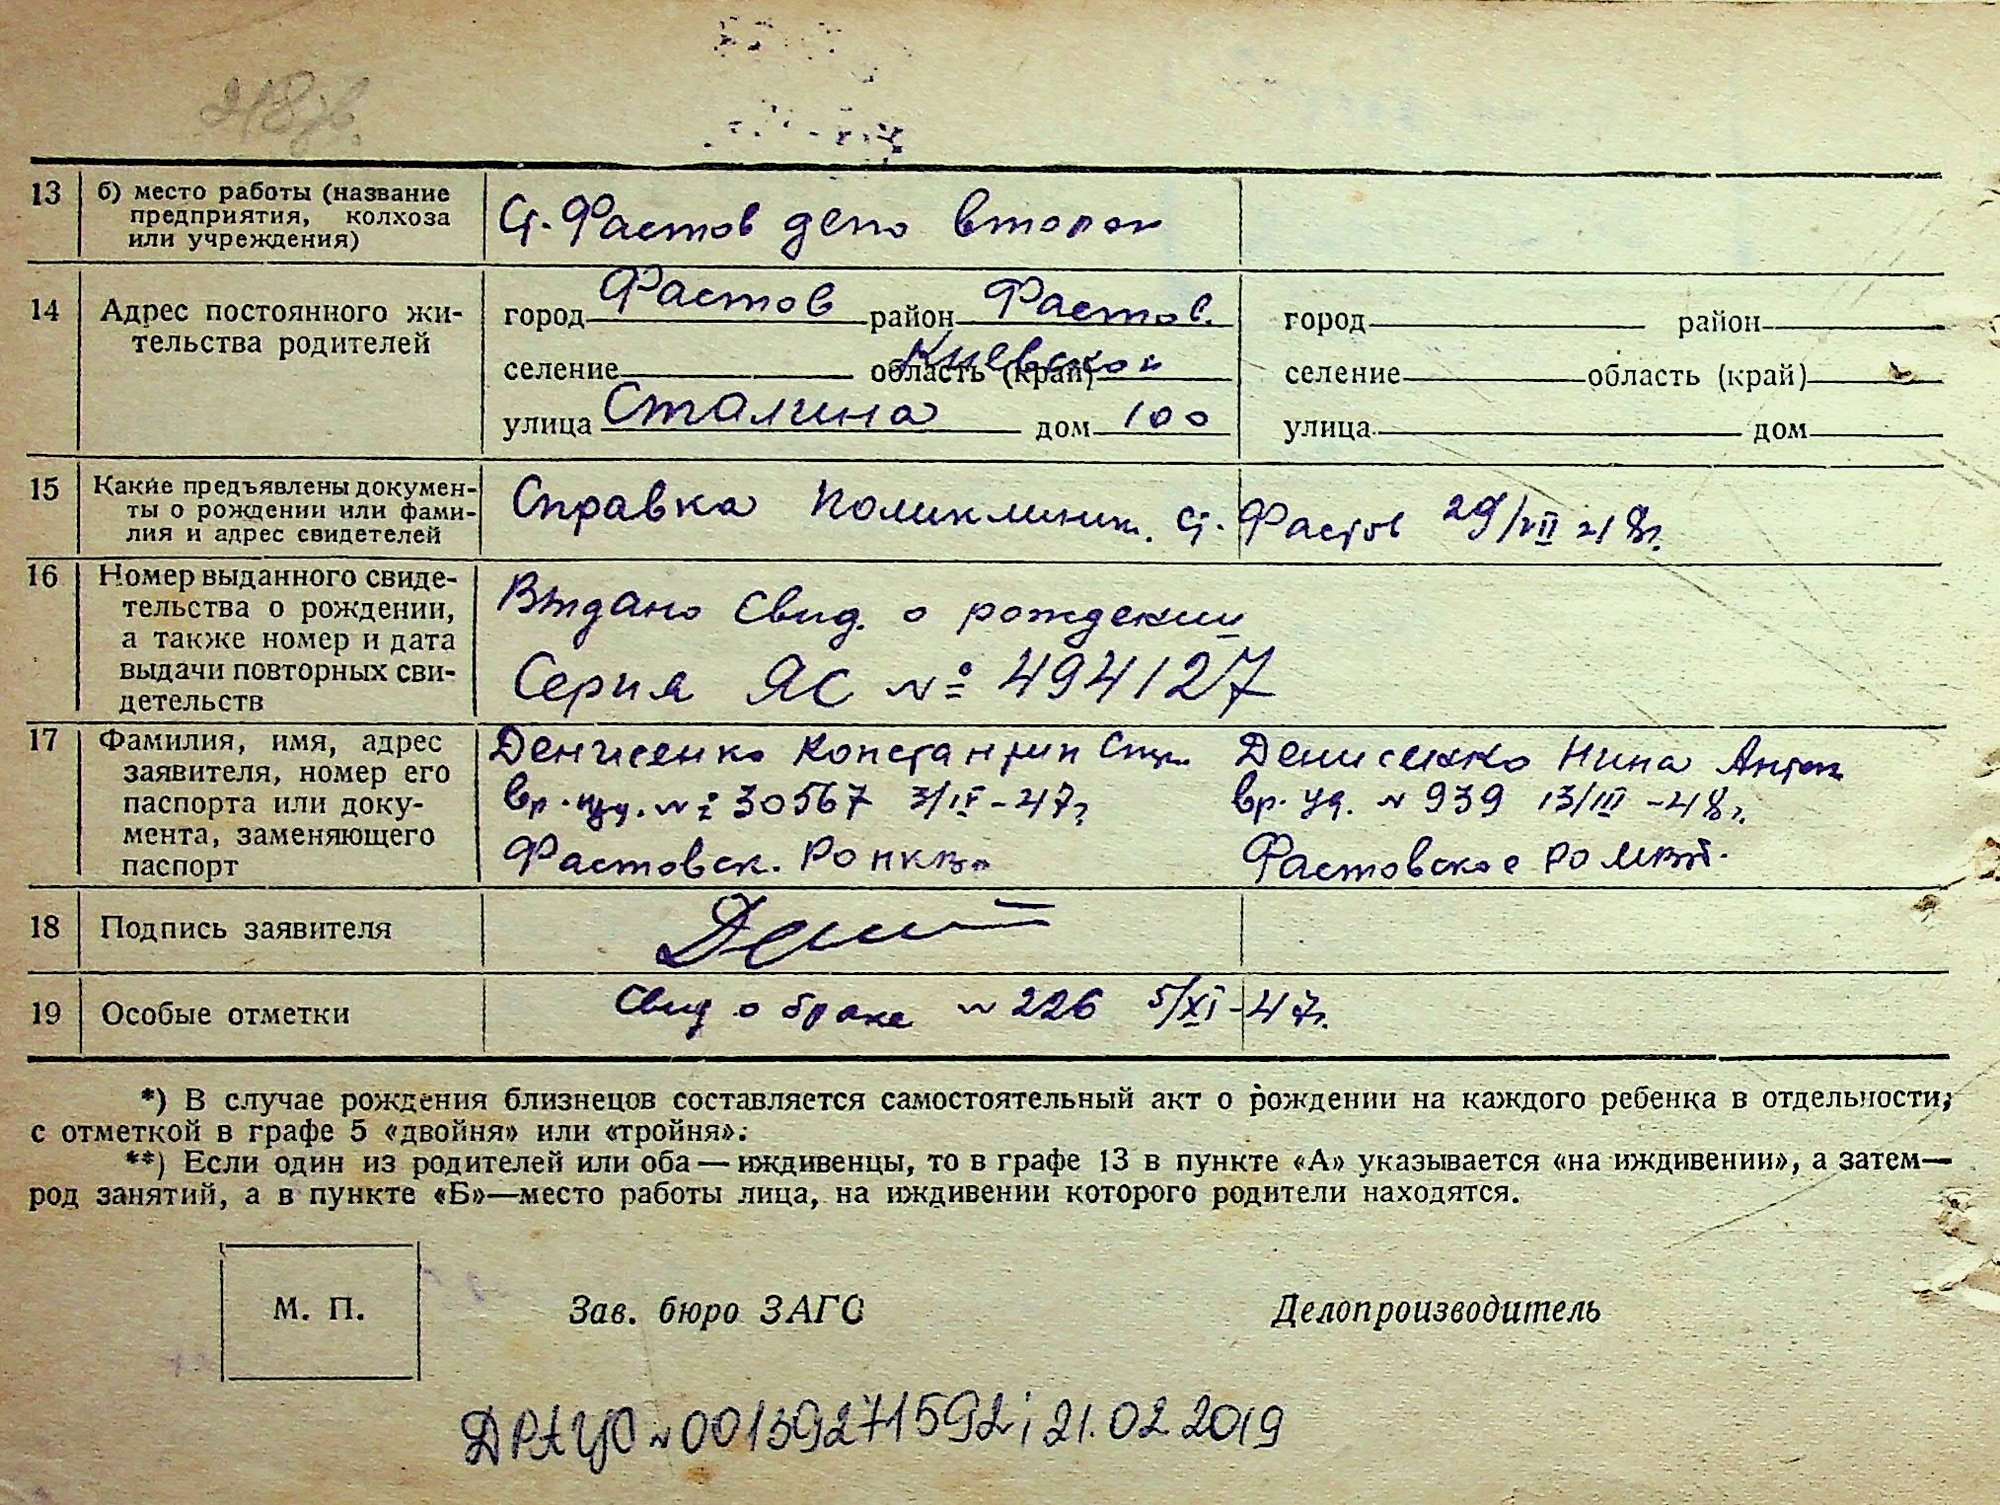 13 б) место работы (название
предприятия, колхоза
или учреждения)
Ст. Фастов депо второй
14 Адрес постоянного жи-
тельства родителей
город Фастов район Фастов.
селение область (край) Киевской
улица Сталина дом 100
город район
селение область (край)
улица дом
15 Какие предъявлены докумен-
ты о рождении или фами-
лия и адрес свидетелей
Справка поликлиник. ст. Фастов 29/VII 48г.
16 Номер выданного свиде-
тельства о рождении,
а также номер и дата
выдачи повторных сви-
детельств
Выдано Свид. о рождении
Серия ЯС № 494127
17 Фамилия, имя, адрес
заявителя, номер его
паспорта или доку-
мента, заменяющего
паспорт
Денисенко Константин
вр. уд. № 30567 3/IV-47г
Фастовск. РО
Денисенко Нина Антон
вр. уд. № 939 13/III-48г.
Фастовское РО
18 Подпись заявителя
19 Особые отметки
Свид о браке № 226 5/XI-47г.
*) В случае рождения близнецов составляется самостоятельный акт о рождении на каждого ребенка в отдельности,
с отметкой в графе 5 «двойня» или «тройня».
**) Если один из родителей или оба — иждивенцы, то в графе 13 в пункте «А» указывается «на иждивении», а затем—
род занятий, а в пункте «Б»—место работы лица, на иждивении которого родители находятся.
М. П.
Зав. бюро ЗАГС
Делопроизводитель
ДРАЦС № 00139271592; 21.02 2019